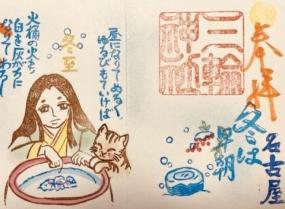 奉拝
三輪
神社
冬は
早朝
名古屋
冬至
昼になりてぬるく
ゆるびもていけば
火桶の火も
白き灰がちに
なりてわろし